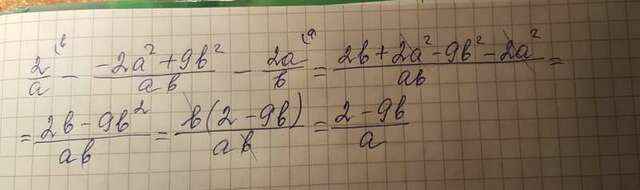 2/a^(b - (-2a² + 9b²)/ab - 2a/b^(a = (2b + 2a² - 9b² - 2a²)/ab =
= (2b - 9b²)/ab = b(2 - 9b)/ab = (2 - 9b)/a